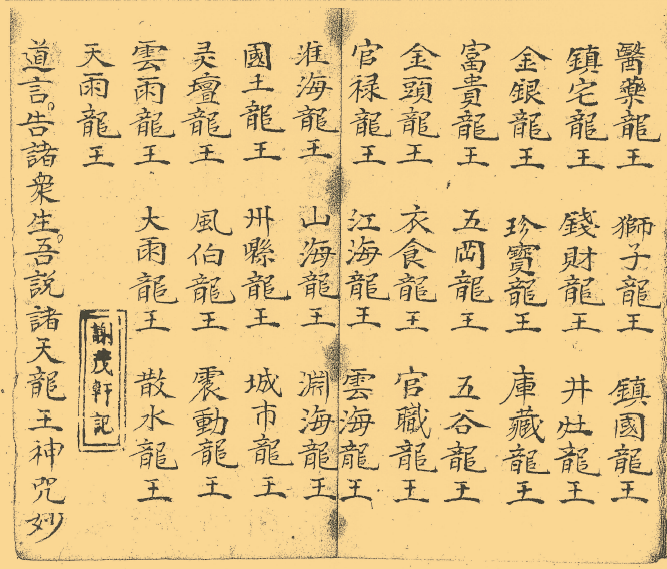 醫藥龍王　獅子龍王　鎮國龍王
鎮宅龍王　錢財龍王　井灶龍王
金銀龍王　珍寶龍王　庫藏龍王
富貴龍王　五岡龍王　五谷龍王
金頭龍王　衣食龍王　官職龍王
官禄龍王　江海龍王　雲海龍王
淮海龍王　山海龍王　淵海龍王
國土龍王　州縣龍王　城市龍王
灵壇龍王　風伯龍王　震動龍王
雲雨龍王　大雨龍王　散水龍王
天雨龍王
謝茂軒記
道言。告諸衆生。吾説諸天龍王神咒妙